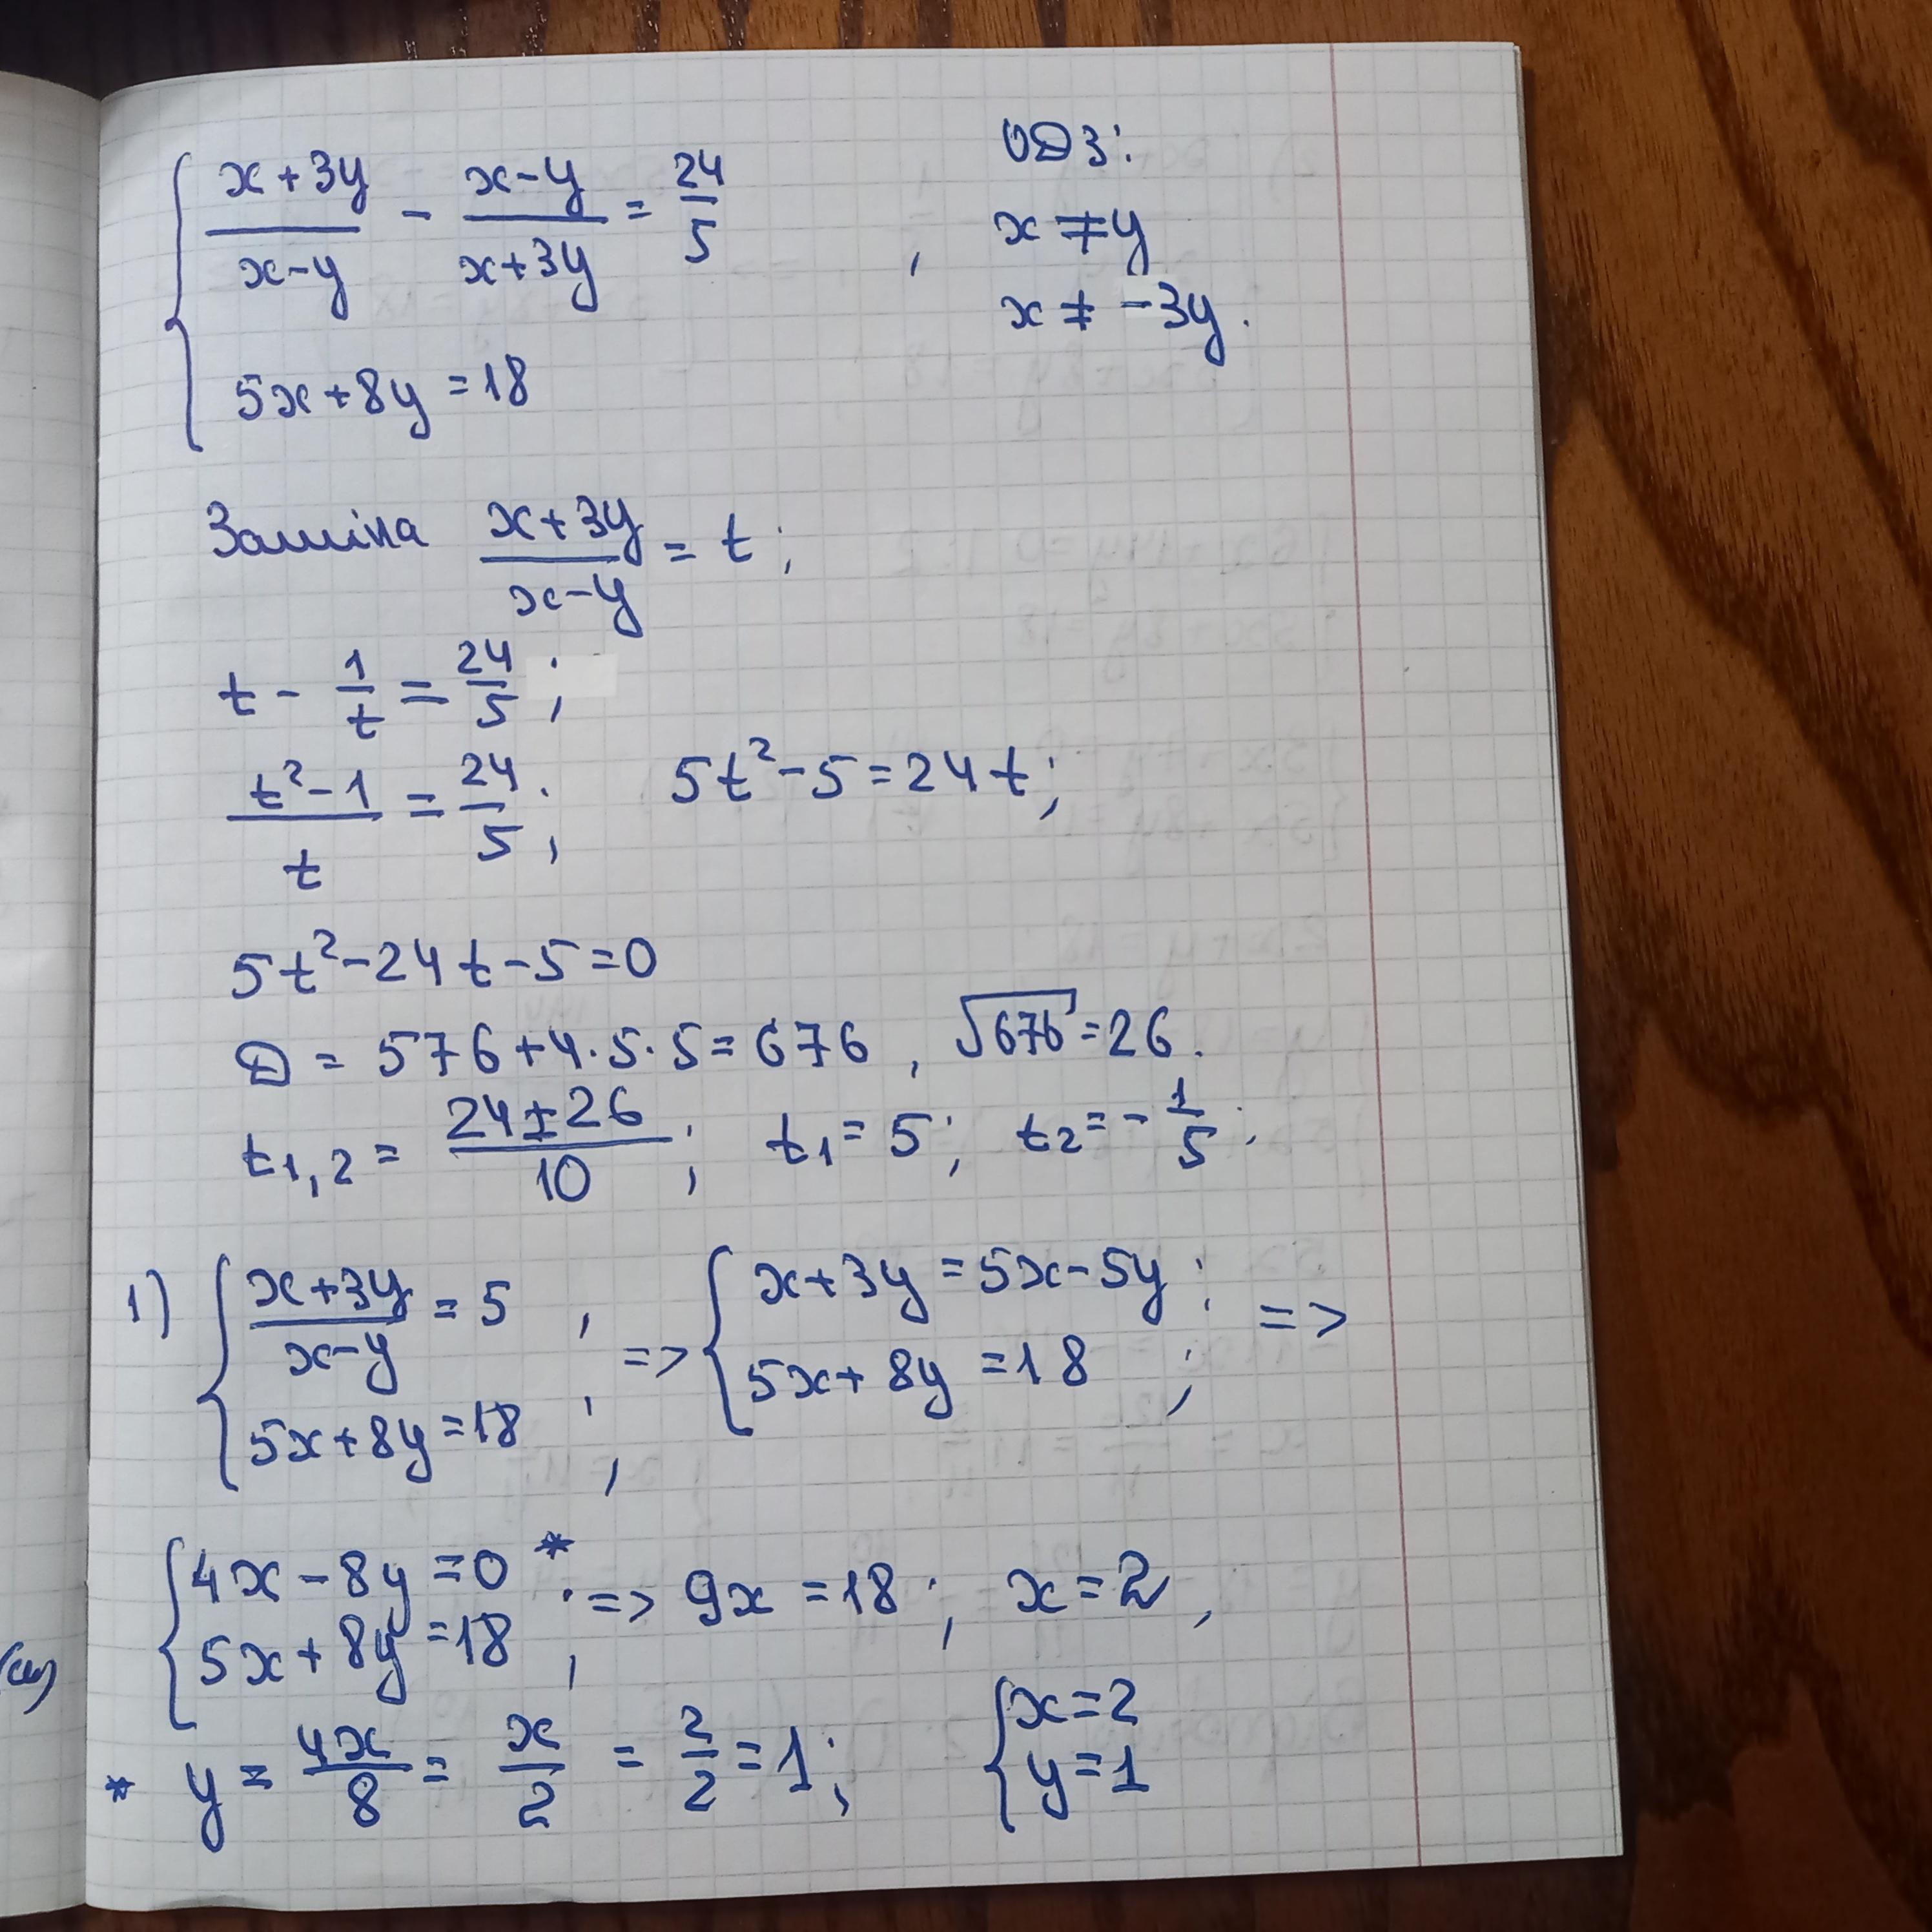 { (x+3y)/(x-y) - (x-y)/(x+3y) = 24/5 ,
5x+8y=18
ОДЗ:
x≠y
x≠-3y.
Заміна (x+3y)/(x-y) = t;
t - 1/t = 24/5;
(t²-1)/t = 24/5; 5t²-5=24t;
5t²-24t-5=0
D = 576+4·5·5=676, √676=26.
t1,2 = (24±26)/10; t1=5; t2=-1/5;
1) { (x+3y)/(x-y) = 5 , => { x+3y=5x-5y; =>
5x+8y=18 ; 5x+8y=18 ;
{ 4x-8y=0 *
5x+8y=18 ; => 9x=18; x=2,
* y = 4x/8 = x/2 = 2/2 = 1; { x=2
y=1